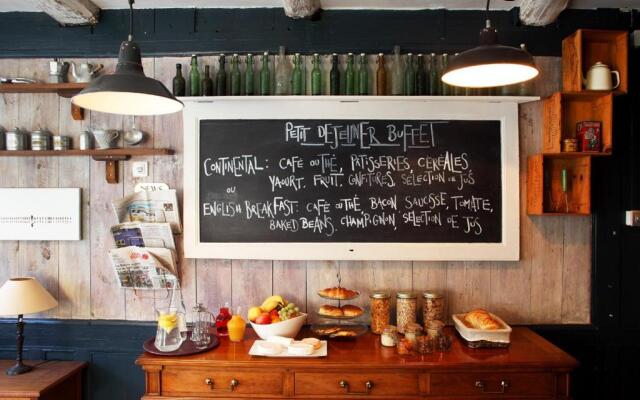 PETIT DEJEUNER BUFFET
CONTINENTAL: CAFÉ OU THÉ, PÂTISSERIES, CÉRÉALES
YAOURT, FRUIT, CONFITURES, SELECTION de JUS
OU
ENGLISH BREAKFAST: CAFÉ OU THÉ BACON SAUCISSE, TOMATE,
BAKED BEANS, CHAMPIGNON, SELECTION DE JUS